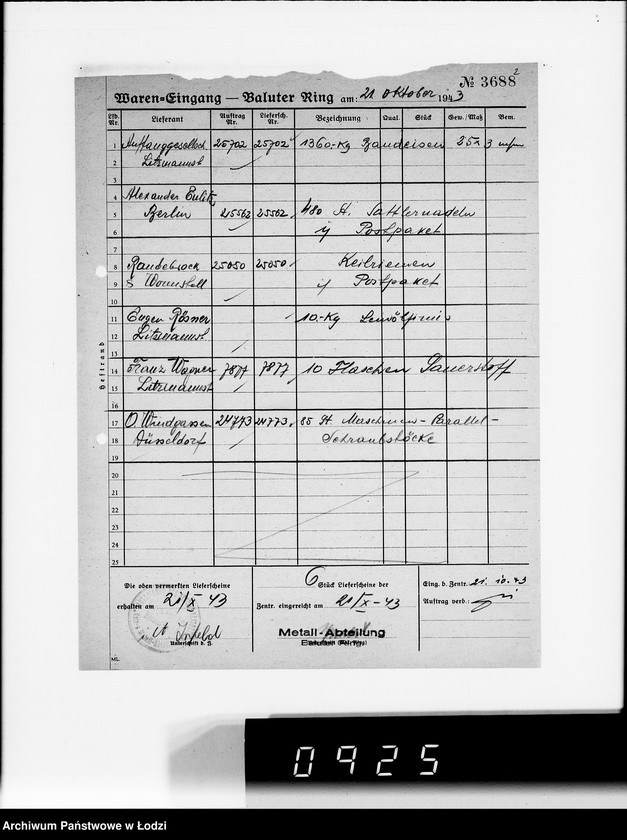 № 3688 2
Waren=Eingang — Baluter Ring am: 21. Oktober 1943
Lfd. Nr. Lieferant Auftrag Nr. Liefersch. Nr. Bezeichnung Qual. Stück Gew./Maß Bem.
1 Auffanggesellsch. 25702 25702 1360.-Kg Bandeisen 25 x 3 m/m
2 Litzmannst.
3
4 Alexander
5 Berlin 25562 25562 480 St. Sattlernadeln
6 Postpaket
7
8 25050 25050 Keilriemen
9 Postpaket
10
11 Eugen Rösner 10.-Kg
12 Litzmannst.
13
14 Franz Wagner 7877 7877 10 Flaschen Sauerstoff
15 Litzmannst
16
17 O. Windgassen 24773 24773 85 St. Maschinen-Parallel-
18 Düsseldorf Schraubstöcke
19
20
21
22
23
24
25
Heftrand
Die oben vermerkten Lieferscheine
erhalten am 21/X 43
Unterschrift d. Z.
6 Stück Lieferscheine der
Zentr. eingereicht am 21/X-43
Metall-Abteilung
Baluter Ring
Eing. b. Zentr. 21. 10. 43
Auftrag verb.:
ML.
0925
Archiwum Państwowe w Łodzi